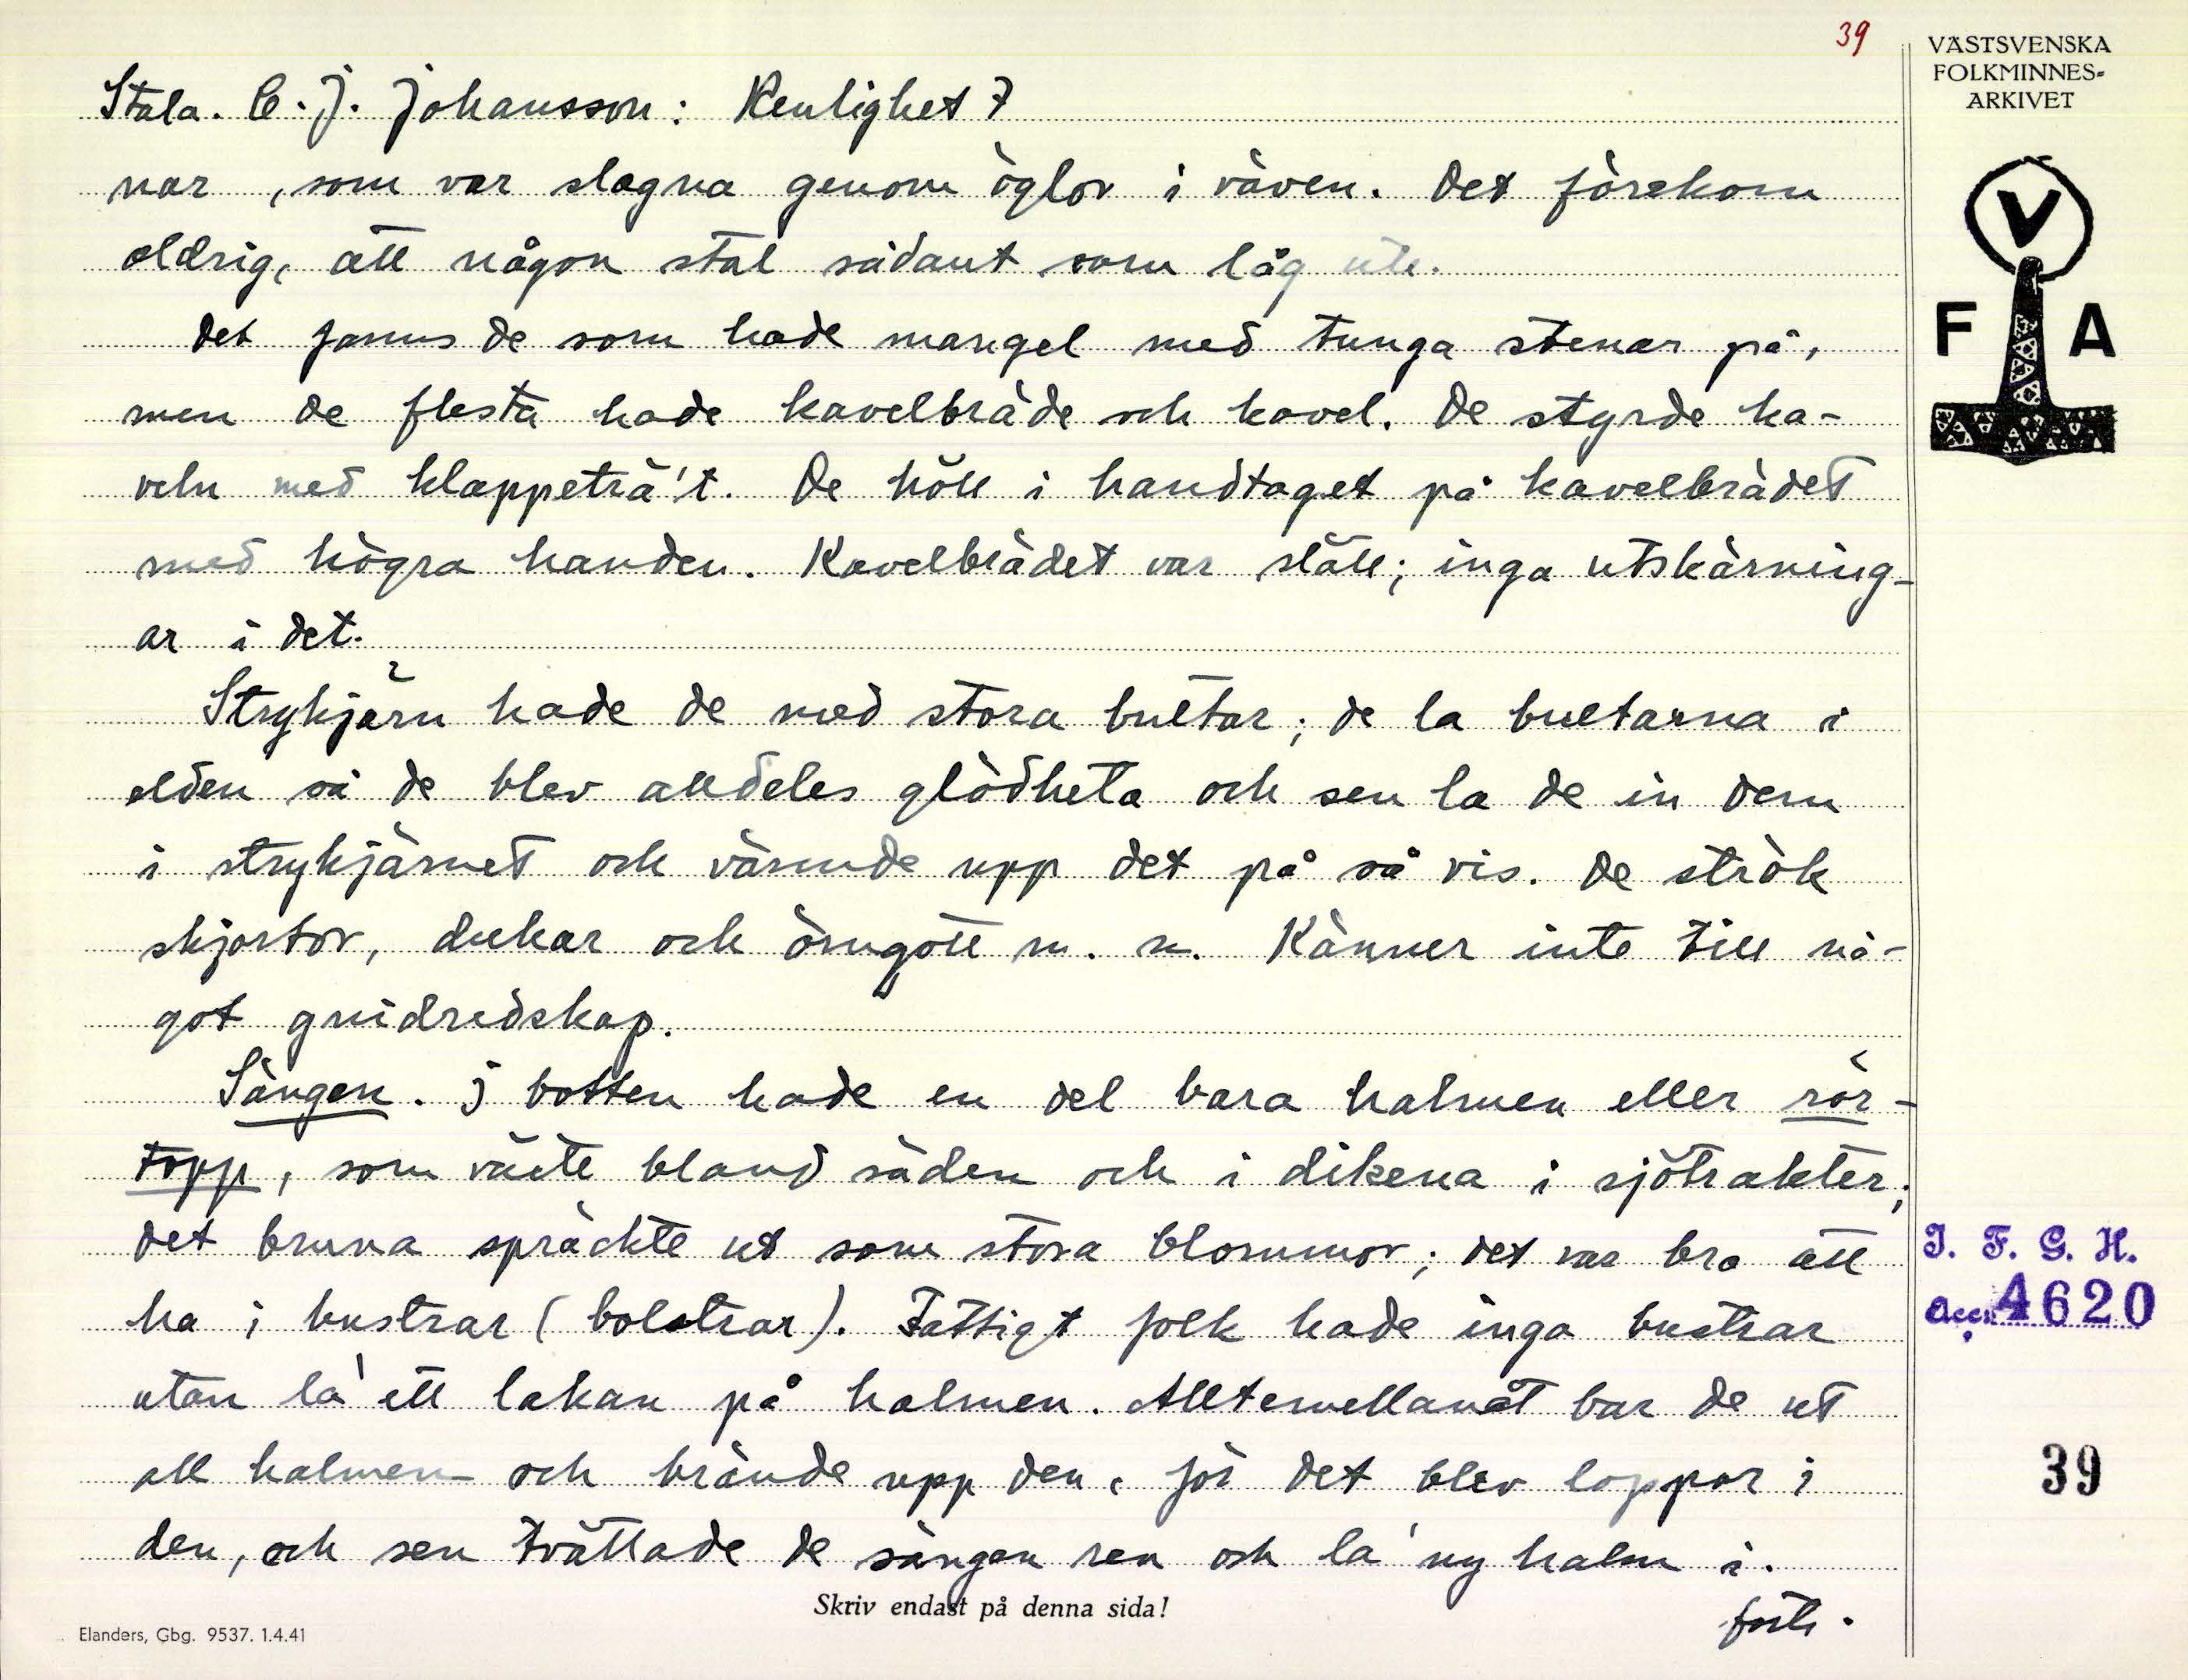 39
VÄSTSVENSKA
FOLKMINNES-
ARKIVET
Stala. C. J. Johansson: Renlighet 7
nar, som var slagna genom öglor i väven. Det förekom
aldrig, att någon stal sådant som låg ute.
Det fanns de som hade mangel med tunga stenar på,
men de flesta hade kavelbräde och kavel. De styrde ka-
veln med klappeträ't. De höll i handtaget på kavelbrädet
med högra handen. Kavelbrädet var slätt; inga utskärning-
ar i det.
Strykjärn hade de med stora bultar; de la bultarna i
elden så de blev alldeles glödheta och sen la de in dem
i strykjärnet och värmde upp det på så vis. De strök
skjortor, dukar och örngott m. m. Känner inte till nå-
got gnidredskap.
Sängen. I botten hade en del bara halmen eller rör-
topp, som växte bland säden och i dikena i sjötrakter;
det bruna spräckte ut som stora blommor; det var bra att
ha i bustrar (bolstrar). Fattigt folk hade inga bustrar
utan la' ett lakan på halmen. Alltemellanåt bar de ut
all halmen och brände upp den, för det blev loppor i
den, och sen tvättade de sängen ren och la' ny halm i.
forts.
V
F A
I. F. G. H.
Acc. 4620
39
Skriv endast på denna sida!
Elanders, Gbg. 9537. 1.4.41